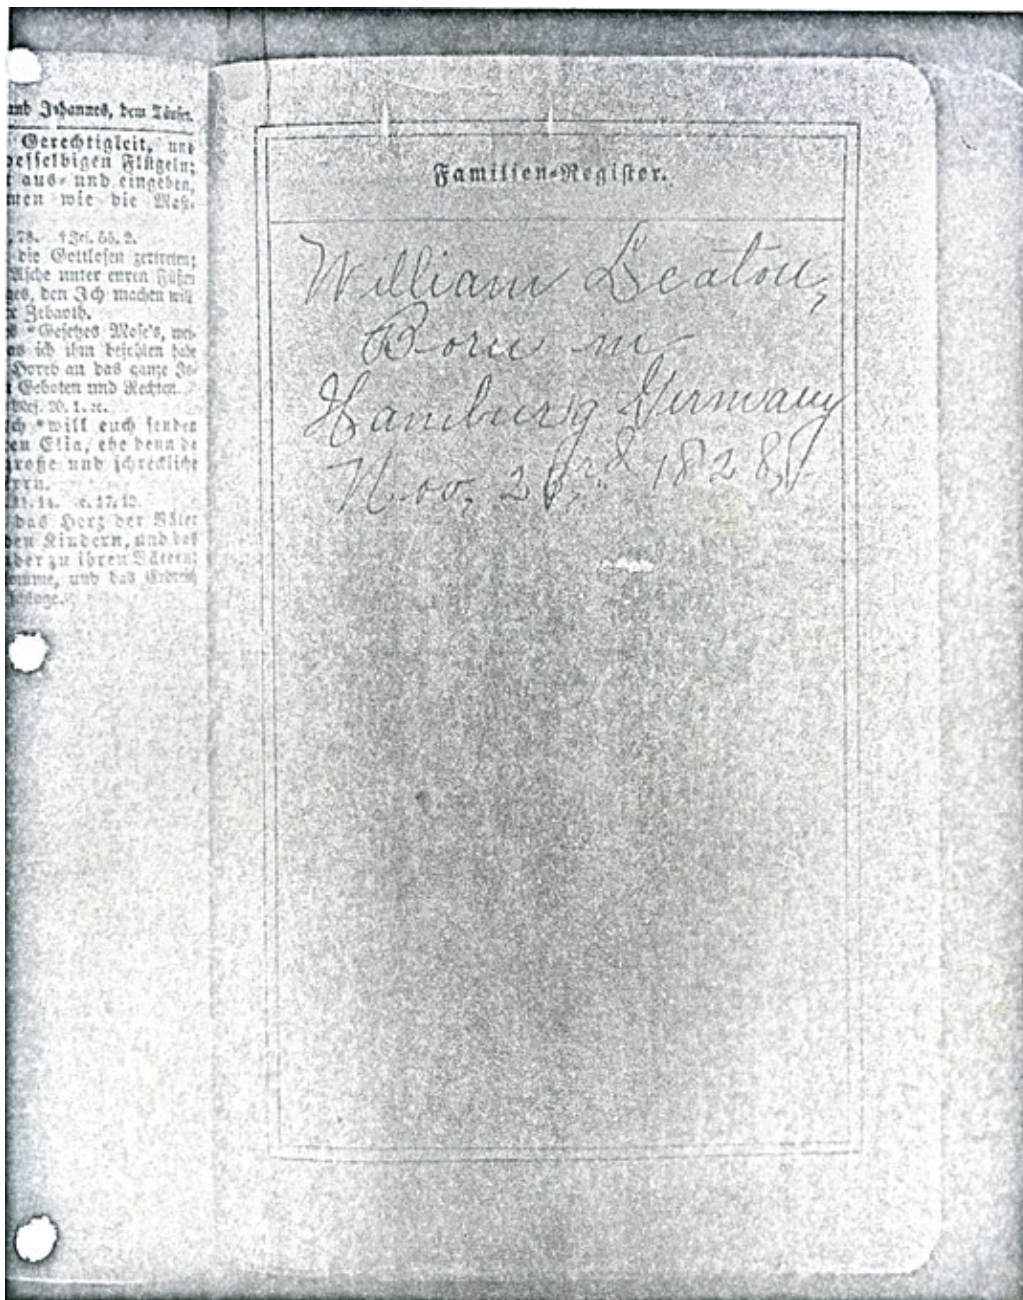 und Johannes, dem Täufer.
Gerechtigkeit, und
desselbigen Flügeln;
aus- und eingehen,
wie die Mast.
78. † Jes. 66, 2.
die Gottlosen zertreten;
Asche unter euren Füßen
den Ich machen will
Zebaoth.
*Gesetzes Mose's,
ich ihm befohlen habe
Horeb an das ganze
Geboten und Rechten.
20. 1. ꝛc.
*will euch senden
Elia, ehe denn da
große und schreckliche
11. 14. c. 17, 12.
das Herz der Väter
den Kindern, und das
zu ihren Vätern;
und das Erdreich
schlage.
Familien-Register.
William Seaton,
Born in
Hamburg Germany
Nov, 23rd 1828,